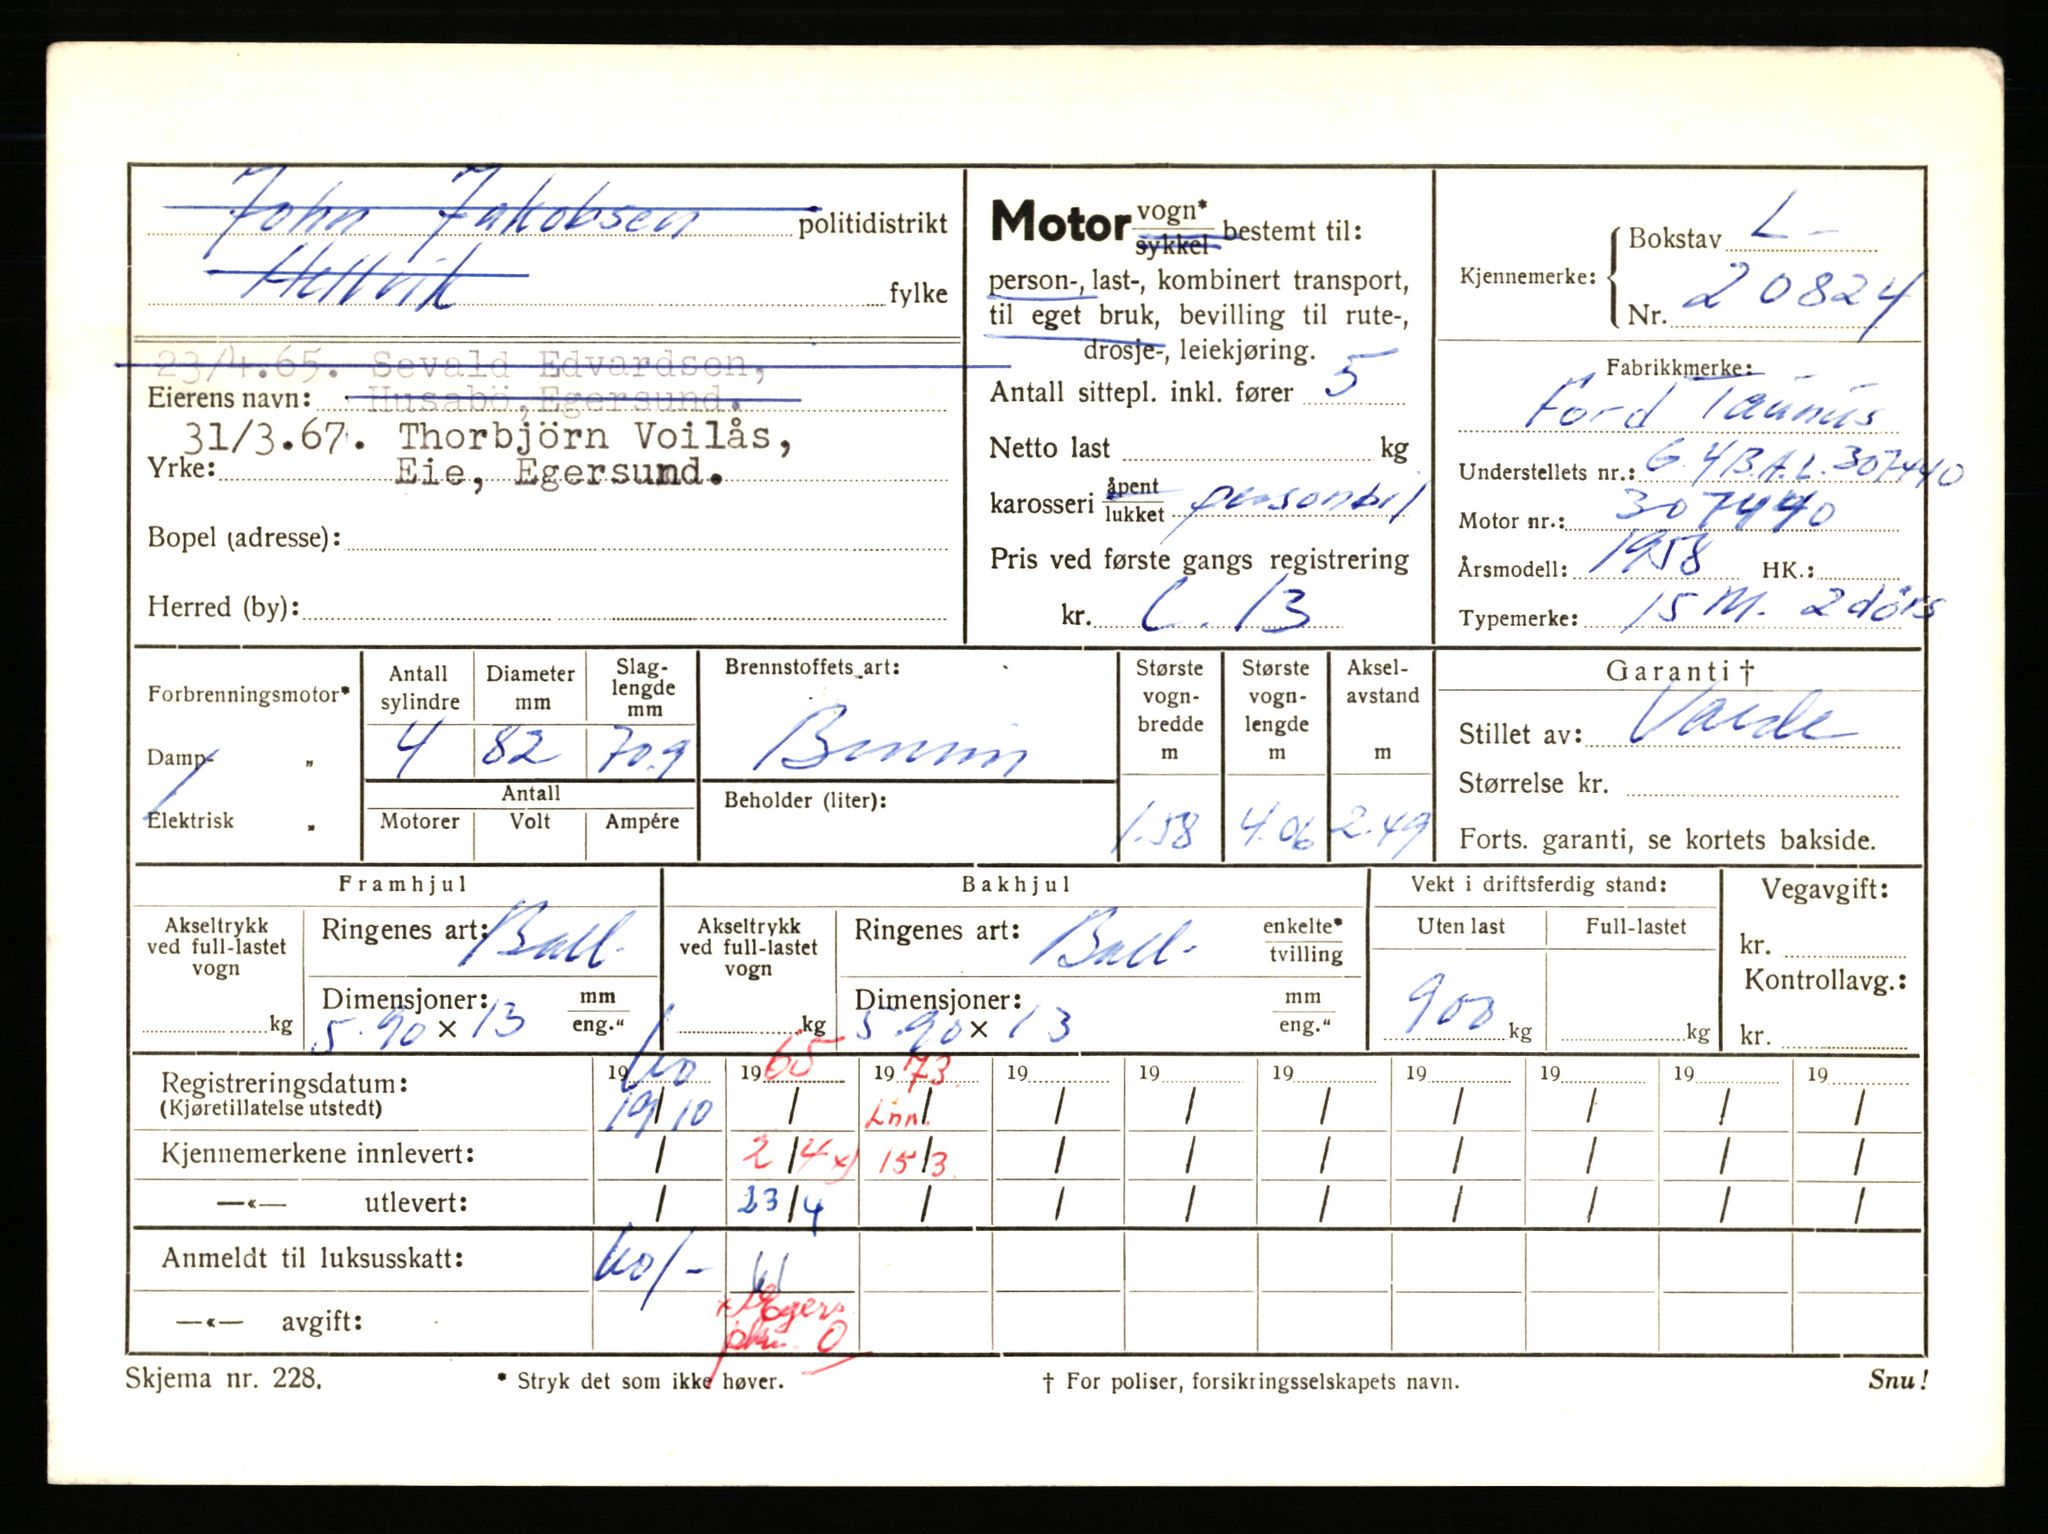 John Jakobsen politidistrikt
Hellvik fylke
23/4.65. Sevald Edvardsen,
Eierens navn: Husabö, Egersund.
31/3.67. Thorbjörn Voilås,
Yrke: Eie, Egersund.
Bopel (adresse):
Herred (by):
Motor vogn* sykkel bestemt til:
person-, last-, kombinert transport,
til eget bruk, bevilling til rute-,
drosje-, leiekjøring.
Antall sittepl. inkl. fører 5
Netto last kg
karosseri åpent lukket personbil
Pris ved første gangs registrering
kr. L. 13
Kjennemerke: Bokstav L-
Nr. 20824
Fabrikkmerke:
Ford Taunus
Understellets nr.: G.4B.A.L.307440
Motor nr.: 307440
Årsmodell: 1958 HK.:
Typemerke: 15 M. 2 dörs
Forbrenningsmotor*
Damp- „
Elektrisk „
Antall sylindre
4
Diameter mm
82
Slag-lengde mm
70.9
Antall
Motorer Volt Ampére
Brennstoffets art:
Bensin
Beholder (liter):
Største vogn-bredde m
1.58
Største vogn-lengde m
4.06
Aksel-avstand m
2.49
Garanti †
Stillet av: Varde
Størrelse kr.
Forts. garanti, se kortets bakside.
Framhjul
Akseltrykk ved full-lastet vogn
kg
Ringenes art: Ball.
Dimensjoner: mm eng."
5.90 × 13
Bakhjul
Akseltrykk ved full-lastet vogn
kg
Ringenes art: Ball. enkelte* tvilling
Dimensjoner: mm eng."
5.90 × 13
Vekt i driftsferdig stand:
Uten last Full-lastet
900 kg kg
Vegavgift:
kr.
Kontrollavg.:
kr.
Registreringsdatum: 1960 1965 1973 19 19 19 19 19 19 19
(Kjøretillatelse utstedt) 19/10 / Inn/ / / / / / / /
Kjennemerkene innlevert: / 2/4 x) 15/3. / / / / / / /
—«— utlevert: / 23/4 / / / / / / / /
Anmeldt til luksusskatt: 60/- 61
—«— avgift: x) Egers.
O
Skjema nr. 228. * Stryk det som ikke høver. † For poliser, forsikringsselskapets navn. Snu!